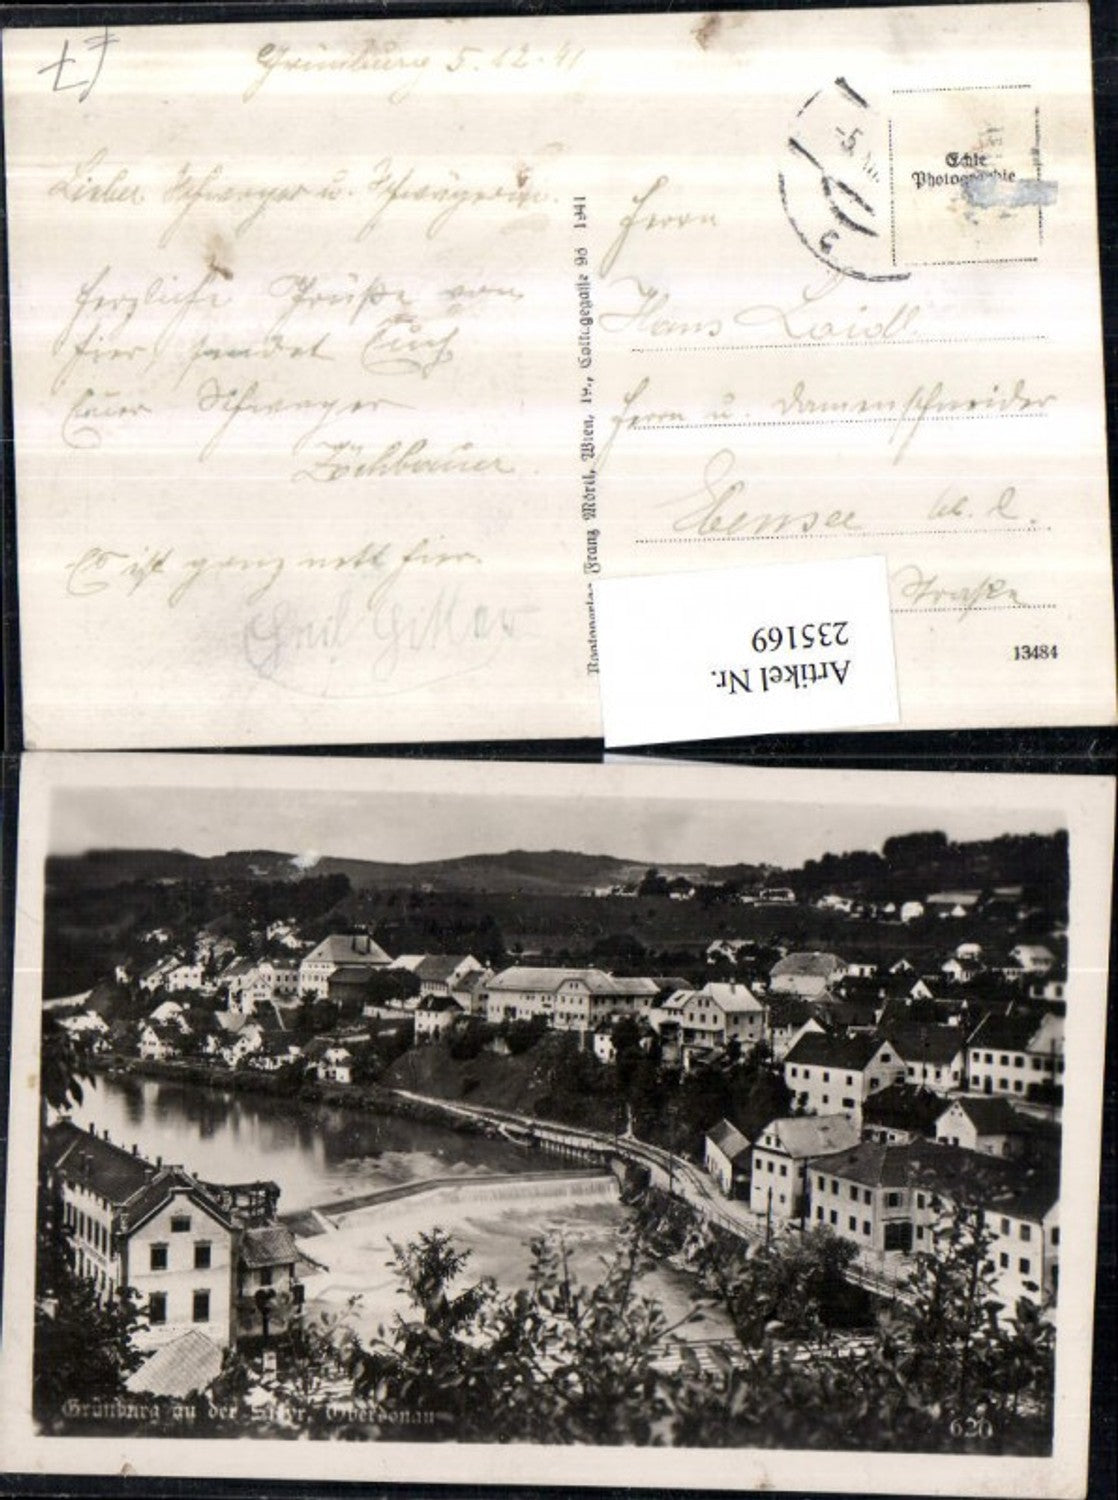 Grünburg 5.12.41
Lieber Schwager u. Schwägerin.
Herzliche Grüße von
hier sendet Euch
Euer Schwager
Es ist ganz nett hier.
Echte
Photographie
Herrn
Hans Loidl
Herrn u. Damenschneider
Ebensee
Straße
13484
Franz Mörtl, Wien, 19., 96 1941
Artikel Nr.
235169
Grünburg an der Steyr, Oberdonau
620